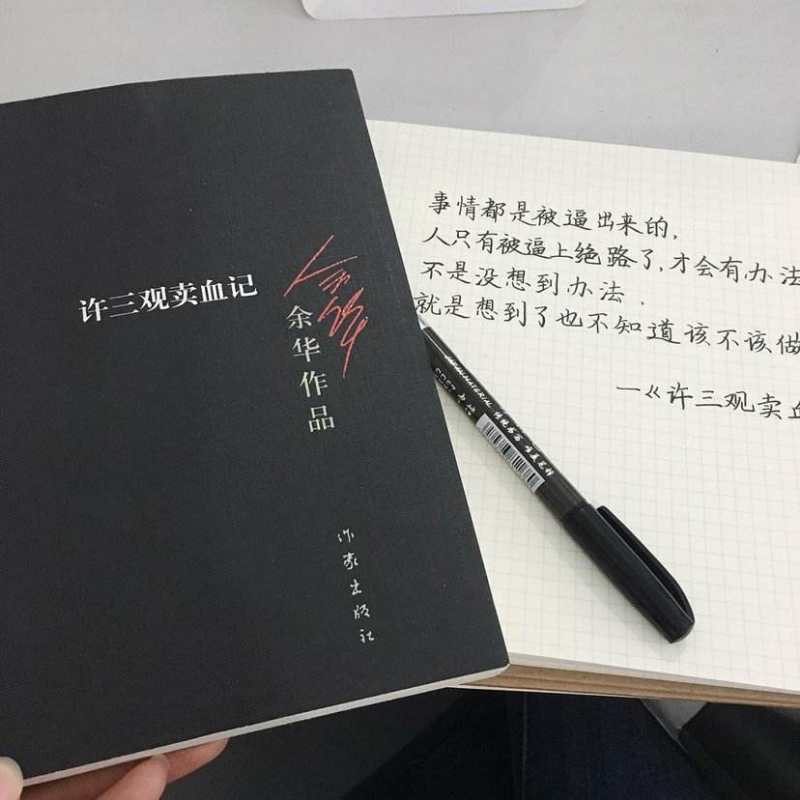 许三观卖血记
余华
余华作品
作家出版社
事情都是被逼出来的,
人只有被逼上绝路了,才会有办法
不是没想到办法.
就是想到了也不知道该不该做
—《许三观卖血